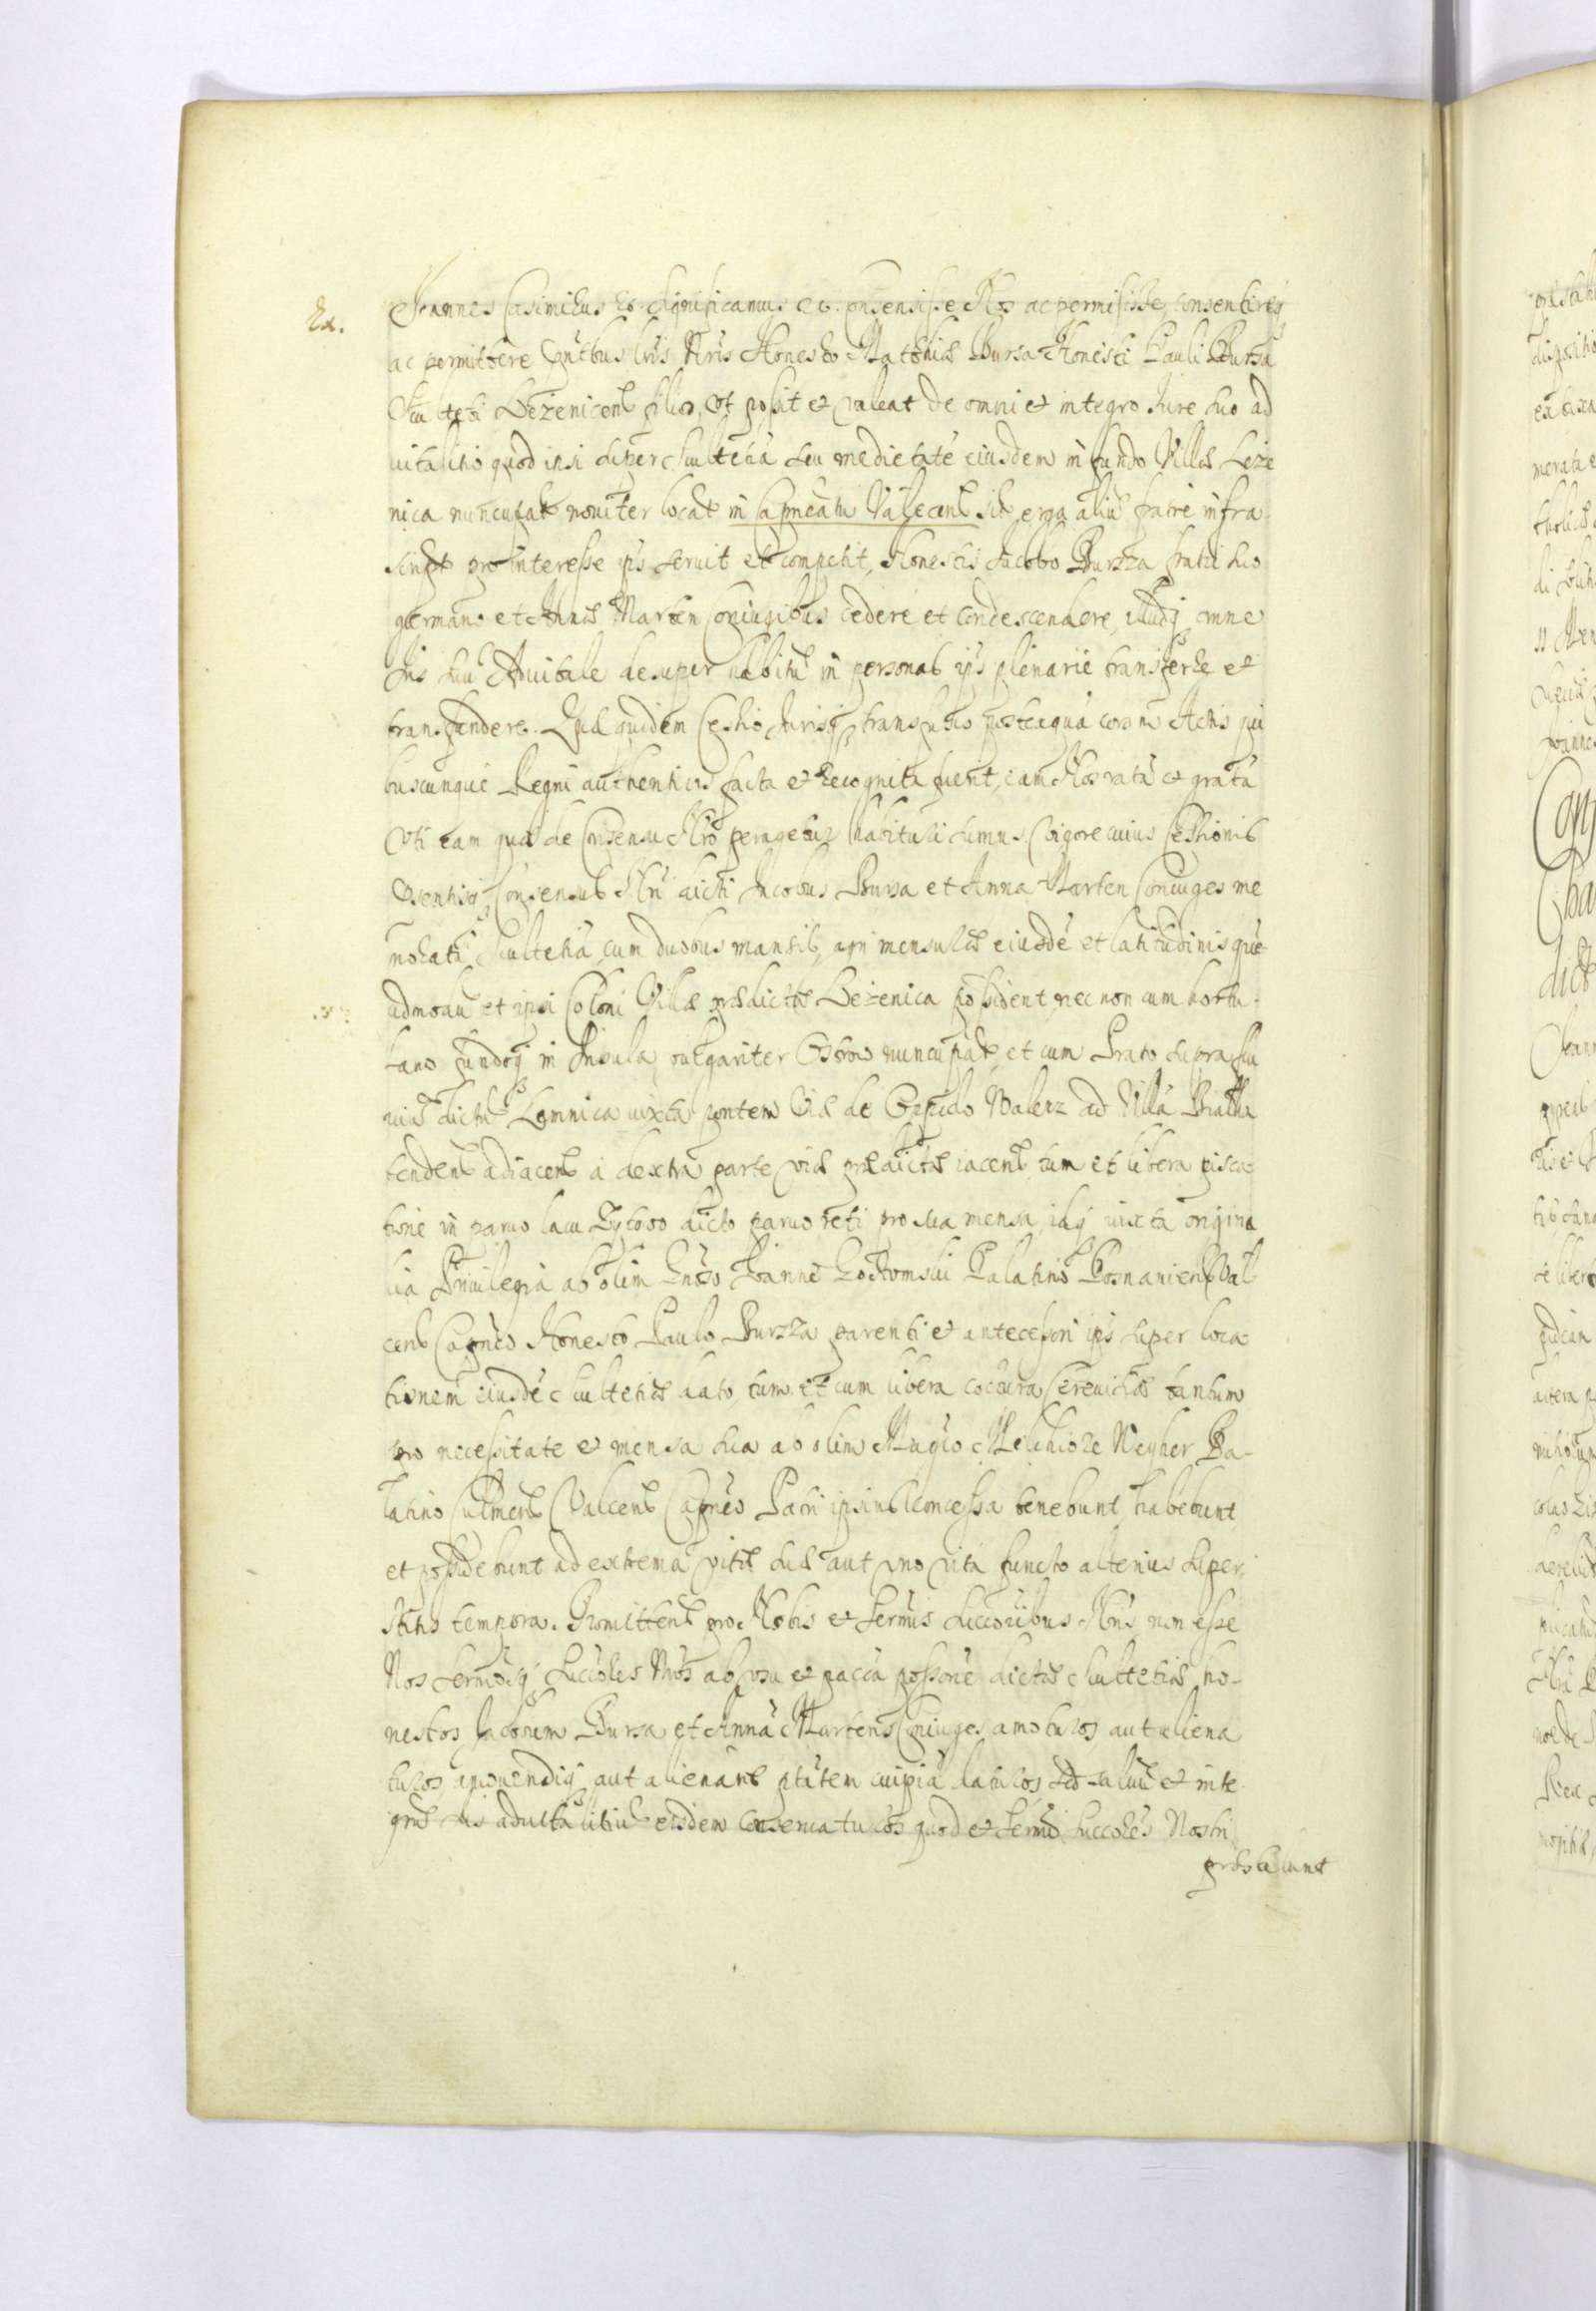 Ex.
Joannes Casimirus etc. Significamus etc. Consensisse Nos ac permisisse, consentireq
ac permittere pntibus lris Nris Honesto Matthiæ Bursa Honesti Pauli Bursa
Sculteti Dezenicens filio, vt possit et valeat de omni et integro Jure suo ad
uitalitio quod ipsi super Scultetiã seu medietatẽ eiusdem in fundo Villæ Leze
nica nuncupat nouiter locat in Capneatu Valecens sit erga aliũ fratrẽ infra
script pro interesse ips seruit et competit, Honestis Jacobo Burzza fratri suo
germano et Annæ Marten Coniugibus cedere et condescendere, illudq omne
Jus suũ Aduitale desuper habitũ in personas ips plenarie transferre et
transfundere. Quæ quidem Cessio Jurisq transfusio posteaquã coram Actis qui
buscunque Regni authenticis facta et recognita fuerit, eam Nos ratã et gratã
vti eam quæ de Consensu Nro peragetur habituri sumus. Vigore cuius Cessionis
præsentisq Consensus Nri dicti Jacobus Bursa et Anna Marten Coniuges me
norati Scultetiã, cum duobus mansis, agri mensuræ eiusdẽ et latitudinis quẽ
admodũ et ipsi Coloni Villæ prædictæ Dezenica possident, nec non cum hortu
lano fundoq in Insula, vulgariter Ostrow nuncupat, et cum Prato supra flu
uiũ dictũ Lomnica iuxta pontem Viæ de Oppido Walcz ad Villã Bialla
tendens adiacens a dextra parte viæ prædictæ iacens, tum et libera pisca
tione in paruo lacu Zytowo dicto paruo reti pro sua mensa, idq iuxta origina
lia Priuilegia ab olim Gnoso Joanne Gostomski Palatino Posnaniens Val
cens Capneo Honesto Paulo Burzza parenti et antecessori ips super loca
tionem eiusdẽ Scultetiæ dato, tum et cum libera coctura Cereuisiæ tantum
pro necessitate et mensa sua ab olim Magco Melchiore Weyher Pa-
latino Culmens Valcens Capneo Patri ipsius concessa tenebunt, habebunt
et possidebunt ad extrema vitæ suæ aut vno vita functo alterius super
stitis tempora. Promittens pro Nobis et Sermis Succoribus Nris non esse
Nos Sermosq Succores Nros ab vsu et pacca possone dictæ Scultetiæ ho-
nestos Jacobum Bursa et Annã Marten Coniuges amoturos aut aliena
turos, amouendiq aut alienand ptatem cuipiã daturos sed saluũ et inte
grũ Jus aduitalitiũ eisdem conseruaturos quod et Sermi Succores Nostri
præstabunt